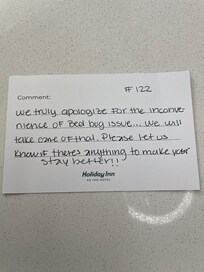 # 122
Comment:
We truly apologize for the inconve-
nience of Bed bug issue... we will
take care of that. Please let us
know if theres anything to make your
stay better!!
Holiday Inn
AN IHG HOTEL